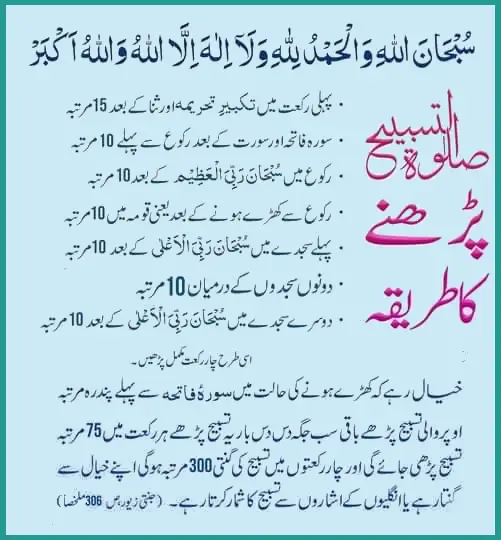 سُبْحَانَ اللهِ وَالْحَمْدُ لِلّٰهِ وَلَآ اِلٰهَ اِلَّا اللهُ وَاللهُ اَكْبَرْ
صلوٰۃ التسبیح
پڑھنے
کا طریقہ
• پہلی رکعت میں تکبیرِ تحریمہ اور ثنا کے بعد 15 مرتبہ
• سورہ فاتحہ اور سورت کے بعد رکوع سے پہلے 10 مرتبہ
• رکوع میں سُبْحَانَ رَبِّیَ الْعَظِیْم کے بعد 10 مرتبہ
• رکوع سے کھڑے ہونے کے بعد یعنی قومہ میں 10 مرتبہ
• پہلے سجدے میں سُبْحَانَ رَبِّیَ الْاَعْلٰی کے بعد 10 مرتبہ
• دونوں سجدوں کے درمیان 10 مرتبہ
• دوسرے سجدے میں سُبْحَانَ رَبِّیَ الْاَعْلٰی کے بعد 10 مرتبہ
اسی طرح چار رکعت مکمل پڑھیں۔
خیال رہے کہ کھڑے ہونے کی حالت میں سورۂ فاتحہ سے پہلے پندرہ مرتبہ
اوپر والی تسبیح پڑھے باقی سب جگہ دس دس بار یہ تسبیح پڑھے ہر رکعت میں 75 مرتبہ
تسبیح پڑھی جائے گی اور چار رکعتوں میں تسبیح کی گنتی 300 مرتبہ ہوگی اپنے خیال سے
گنتا رہے یا انگلیوں کے اشاروں سے تسبیح کا شمار کرتا رہے۔ (جنتی زیور، ص 306 ملخصا)